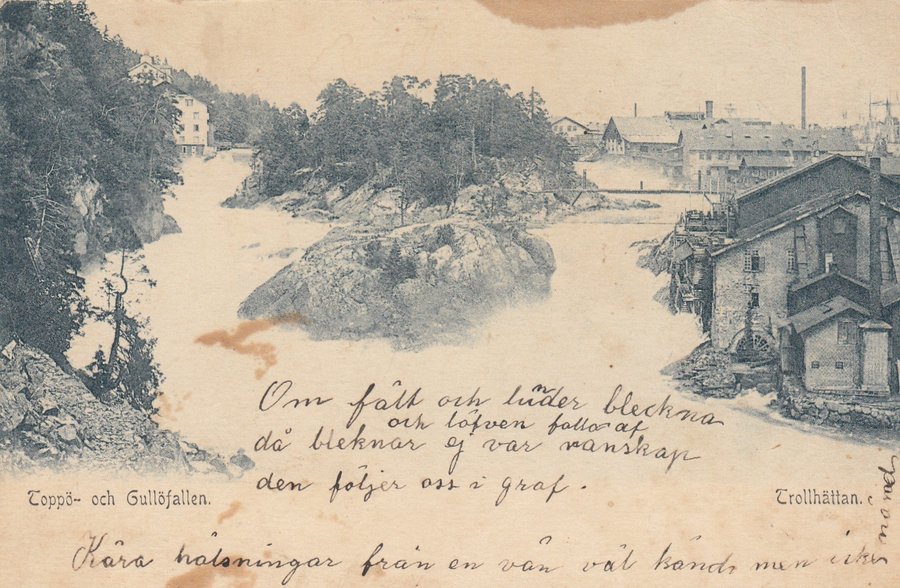 Om fält och lunder bleckna
och löfven falla af
då bleknar ej vår vänskap
den följer oss i graf.
Toppö- och Gullöfallen.
Trollhättan.
Kära hälsningar från en vän väl känd men icke